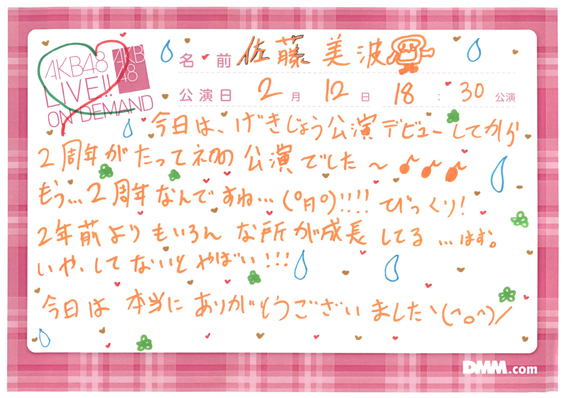 AKB48
LIVE!!
ON DEMAND
AKB
48
名前 佐藤美波
公演日 2月12日 18:30公演
今日は、げきじょう公演デビューしてから
2周年がたって初の公演でした〜♪♪♪
もう…2周年なんですね…(°Д°)!!!! びっくり!
2年前よりもいろんな所が成長してる…はず。
いや、してないとやばい!!!
今日は本当にありがとうございました\(^o^)/
DMM.com